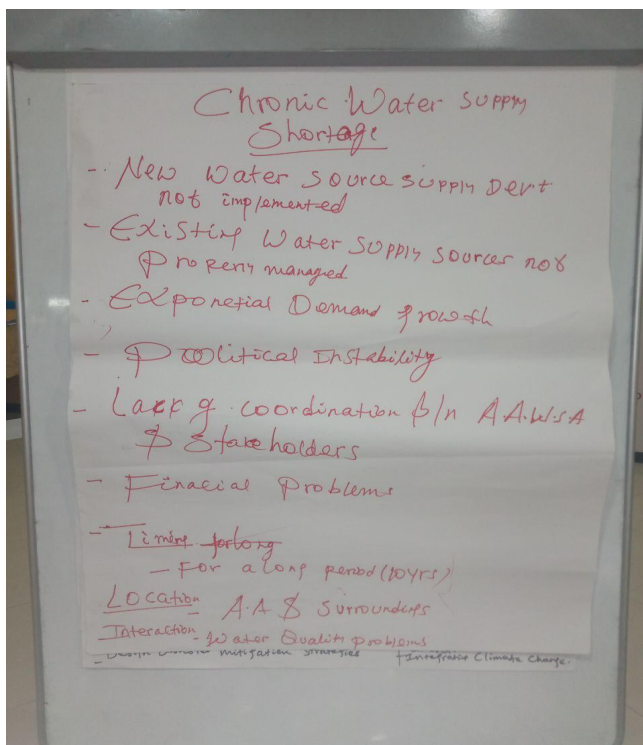 Chronic Water supply
Shortage
- New water source supply Dev't
not implemented
- Existing water supply sources not
properly managed
- Exponetial Demand growth
- Political Instability
- Lack of coordination b/n A.A.W.S.A
& Stakeholders
- Finacial Problems
- Timing for long
- For a long period (10yrs)
Location - A.A & surroundings
Interaction - Water Quality problems
mitigation strategies + Integrate Climate Change.